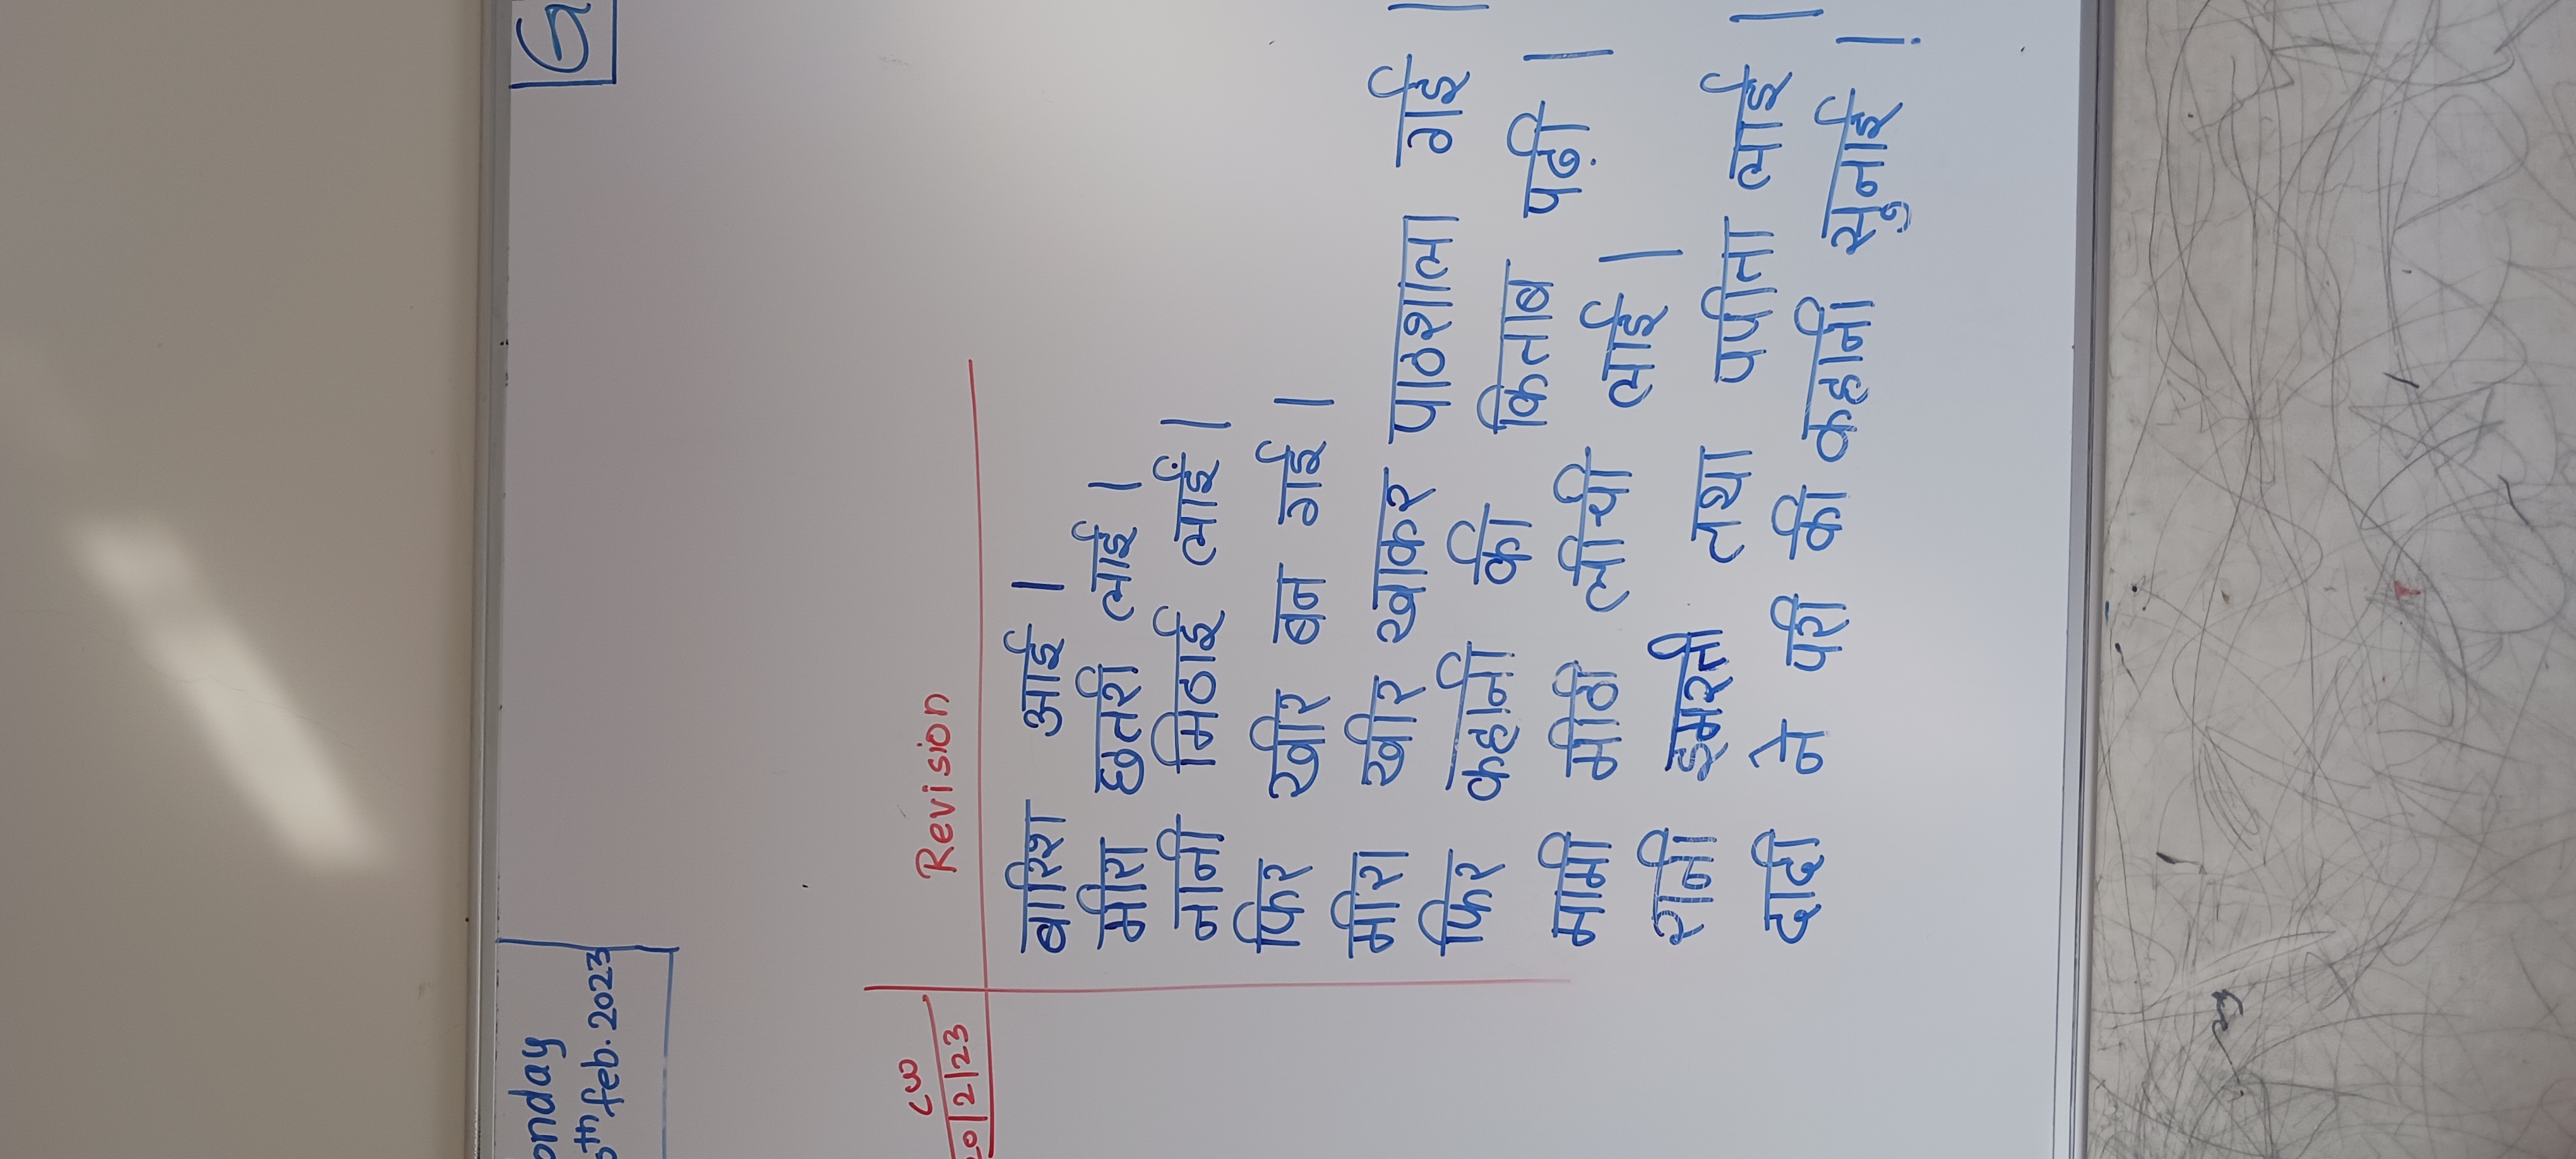 feb. 2023
CW
Revision
बारिश आई ।
मीरा छतरी लाई ।
नानी मिठाई लाईं ।
फिर खीर बन गई ।
मीरा खीर खाकर पाठशाला गई ।
फिर कहानी की किताब पढ़ी ।
मामी मीठी लीची लाई ।
रानी इमरती तथा पपीता लाई ।
दादी ने परी की कहानी सुनाई ।